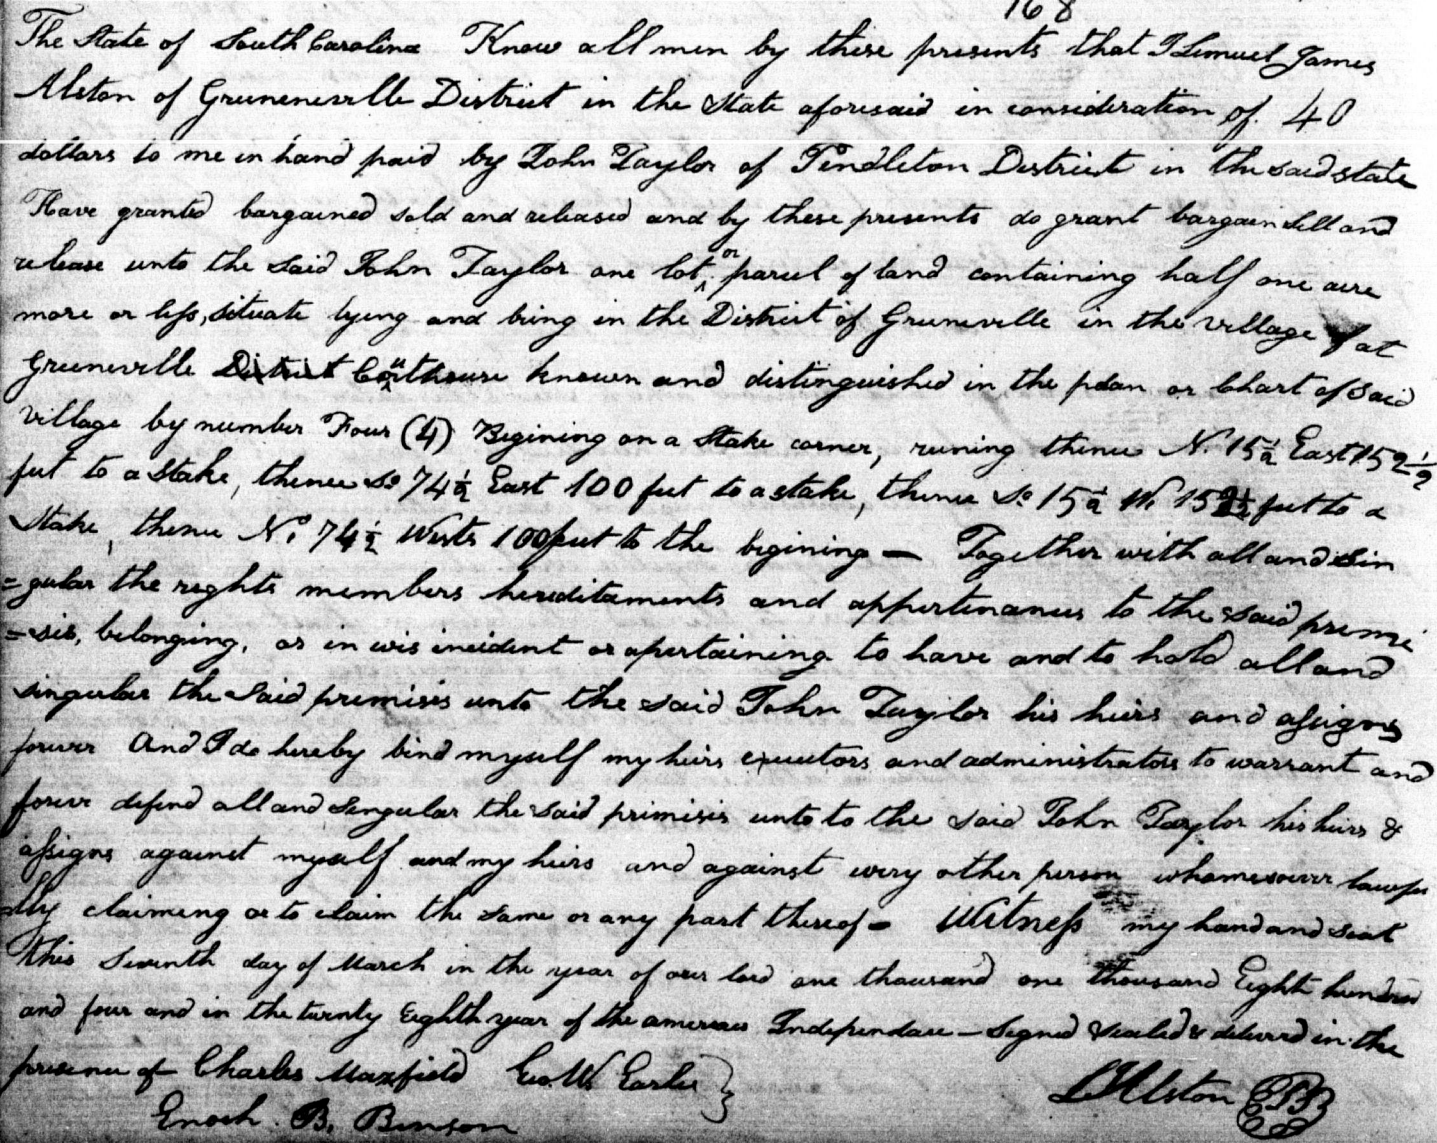 168
The State of South Carolina Know all men by these presents that I Lemuel James
Alston of Greeneneville District in the State aforesaid in consideration of 40
dollars to me in hand paid by John Taylor of Pendleton District in the said state
Have granted bargained sold and released and by these presents do grant bargain sell and
release unto the said John Taylor one lot or parcel of land containing half one acre
more or less, situate lying and being in the District of Greeneville in the village at
Greeneville District Courthouse known and distinguished in the plan or Chart of said
village by number Four (4) Begining on a Stake corner, runing thence N. 15½ East 152½
feet to a Stake, thence So 74½ East 100 feet to a stake, thence So 15½ W 152½ feet to a
Stake, thence No 74½ West 100 feet to the begining — Together with all and Sin
=gular the rights members hereditaments and appertenances to the said premi
=sis, belonging, or in wis incident or apertaining to have and to hold all and
singular the said premisis unto the said John Taylor his heirs and assigns
forever And I do hereby bind myself my heirs executors and administrators to warrant and
forevr defend all and Singular the said primisis unto to the said John Taylor his heirs &
assigns against myself and my heirs and against every other person whomesoever lawfu
lly claiming or to claim the same or any part thereof — Witness my hand and seal
this Seventh day of March in the year of our lord one thousand one thousand Eight hundred
and four and in the twenty Eighth year of the american Independance — Signed Sealed & deliverd in the
presence of Charles Maxfield Geo. W. Earle
Enoch. B. Benson
L J Alston